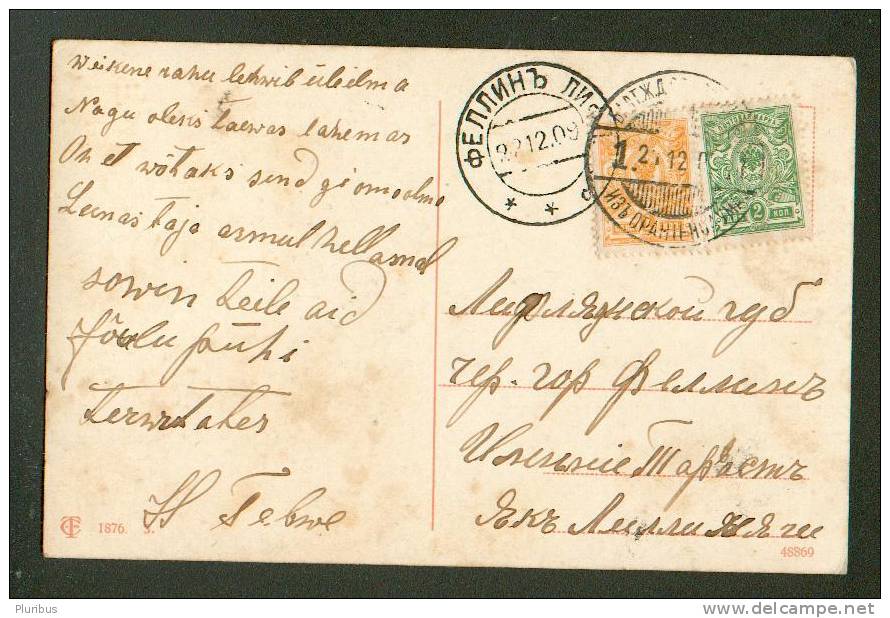 Weikene rahu lehwib üleilma
Nagu oleks taewas lahemas
On et wõtaks sind
Leinastaja armul hellamal
sowin teile aid
Jõulu pühi
terwitates
ФЕЛЛИНЪ ЛИФ
22 12.09
1.2 12
ИЗЪ ОРАНІЕНБАУМ
2 КОП
Лифляжской губ
чер. гор Феллинъ
Именніе Тарвастъ
Якъ Лиллимяги
1876.
48869
Pluribus
http://www.delcampe.net